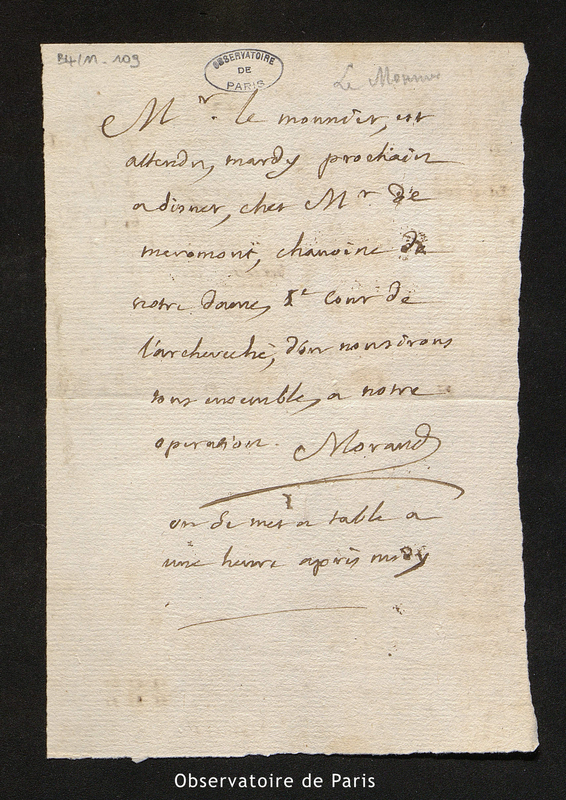 B4/11-109
OBSERVATOIRE
DE
PARIS
Le Monnier
Mr. le monnier, est
attendu, mardy prochain
a disner, chez Mr de
meromont, chanoine de
notre dame, Cour de
l'archeveché, d'ou nous irons
tous ensemble, a notre
operation. Morand
on se met a table a
une heure apres midy
Observatoire de Paris